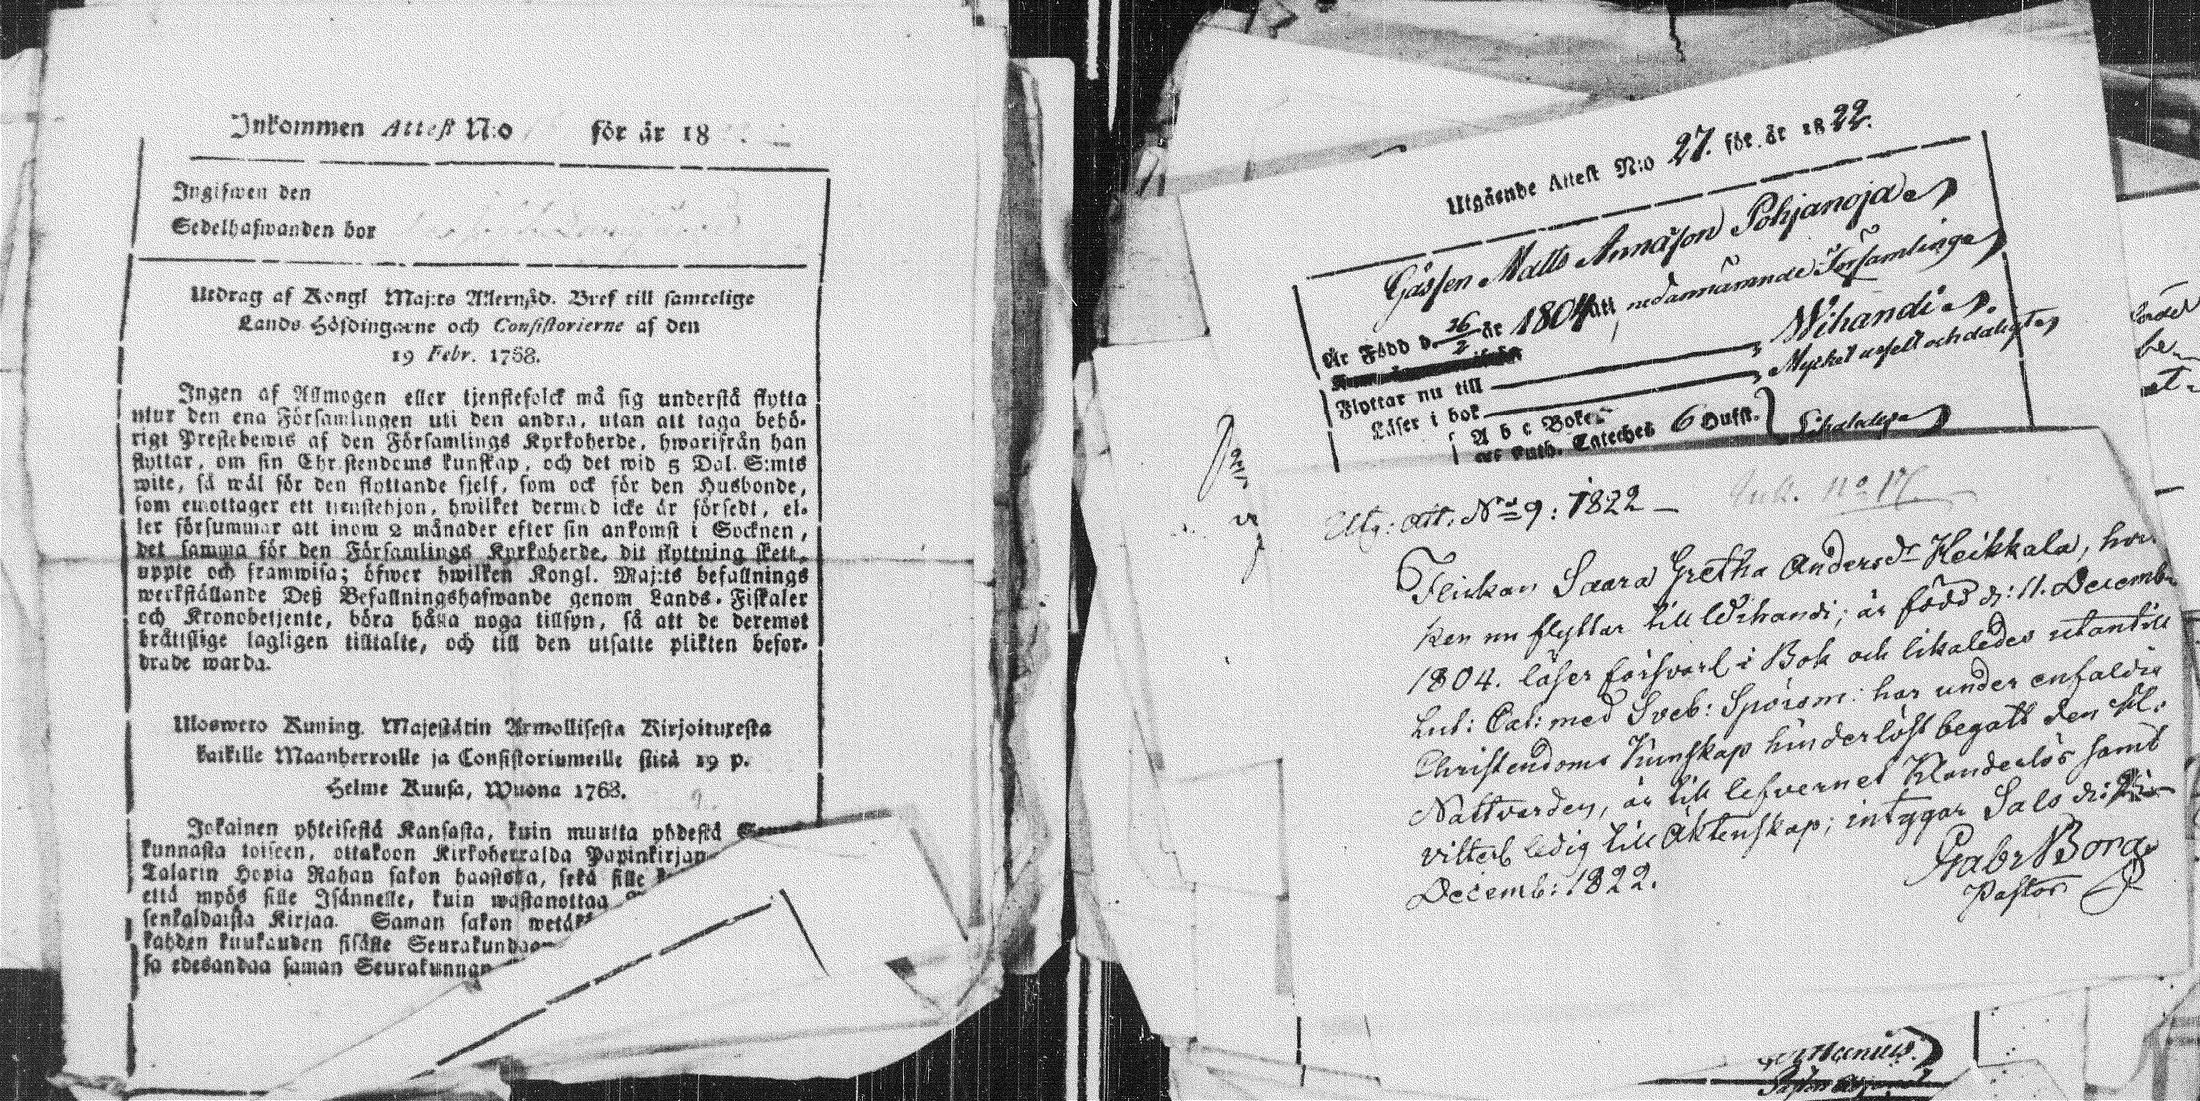 Inkommen Attest N:o för år 18
Ingifwen den
Sedelhafwanden bor
Utdrag af Kongl Maj:ts Allernåd. Bref till samtelige
Lands Höfdingarne och Consistorierne af den
19 Febr. 1768.
Ingen af Allmogen eller tjenstefolck må sig understå flytta
utur den ena Församlingen uti den andra, utan att taga behö-
rigt Prestebewis af den Församlings Kyrkoherde, hwarifrån han
flyttar, om sin Christendoms kunskap, och det wid 5 Dal. S:mts
wite, så wäl för den flyttande sjelf, som ock för den Husbonde,
som emottager ett tienstehjon, hwilket dermed icke är försedt, el-
ler försummar att inom 2 månader efter sin ankomst i Socknen,
det samma för den Församlings Kyrkoherde, dit flyttning skett,
uppte och framwisa; öfwer hwilken Kongl. Maj:ts befallnings
werkställande Deß Befallningshafwande genom Lands-Fiskaler
och Kronobetjente, böra hålla noga tillsyn, så att de deremot
bråttslige lagligen tilltalte, och till den utsatte plikten befor-
drade warda.
Ulosweto Kuning. Majestätin Armollisesta Kirjoituxesta
kaikille Maanherroille ja Consistoriumeille siitä 19 p.
Helme Kuusa, Wuona 1768.
Jokainen yhteisestä Kansasta, kuin muutta yhdestä
kunnasta toiseen, ottakoon Kirkoherralda Papinkirjan
Talarin Hopia Rahan sakon haastolla, sekä sille
että myös sille Isännelle, kuin wastanottaa
senkaldaista Kirjaa. Saman sakon wetäkö
kahden kuukauden sisälle Seurakundaan
sa edesandaa saman Seurakunnan
Utgående Attest N:o 27. för år 1822.
Gåssen Matts Annäson Pohjanoja
Är Född d. 26/2 år 1804 utt nedannämnde Församlinga
Flyttar nu till Wihandi.
Läser i bok Mycket uselt och daligt
A b c Boken
Luth. Cateches 6 Hufst. Likaledes
Utg: Att: No 9: 1822
Ink. No 17
Flickan Saara Gretha Andersdr Heikkala, hvil-
ken nu flyttar till Wihandi; är född d: 11. Decembr
1804. läser försvarl i Bok och likaledes utantill
Lut: Cat: med Sveb: Spörsm: har under enfaldig
Christendoms Kunskap hinderlöst begått den Hl.
Nattvarden, är till lefvernet Klanderlös samt
vitterl ledig till Äktenskap; intygar Salo d:
Decemb: 1822.
Gabr Borg
Pastor